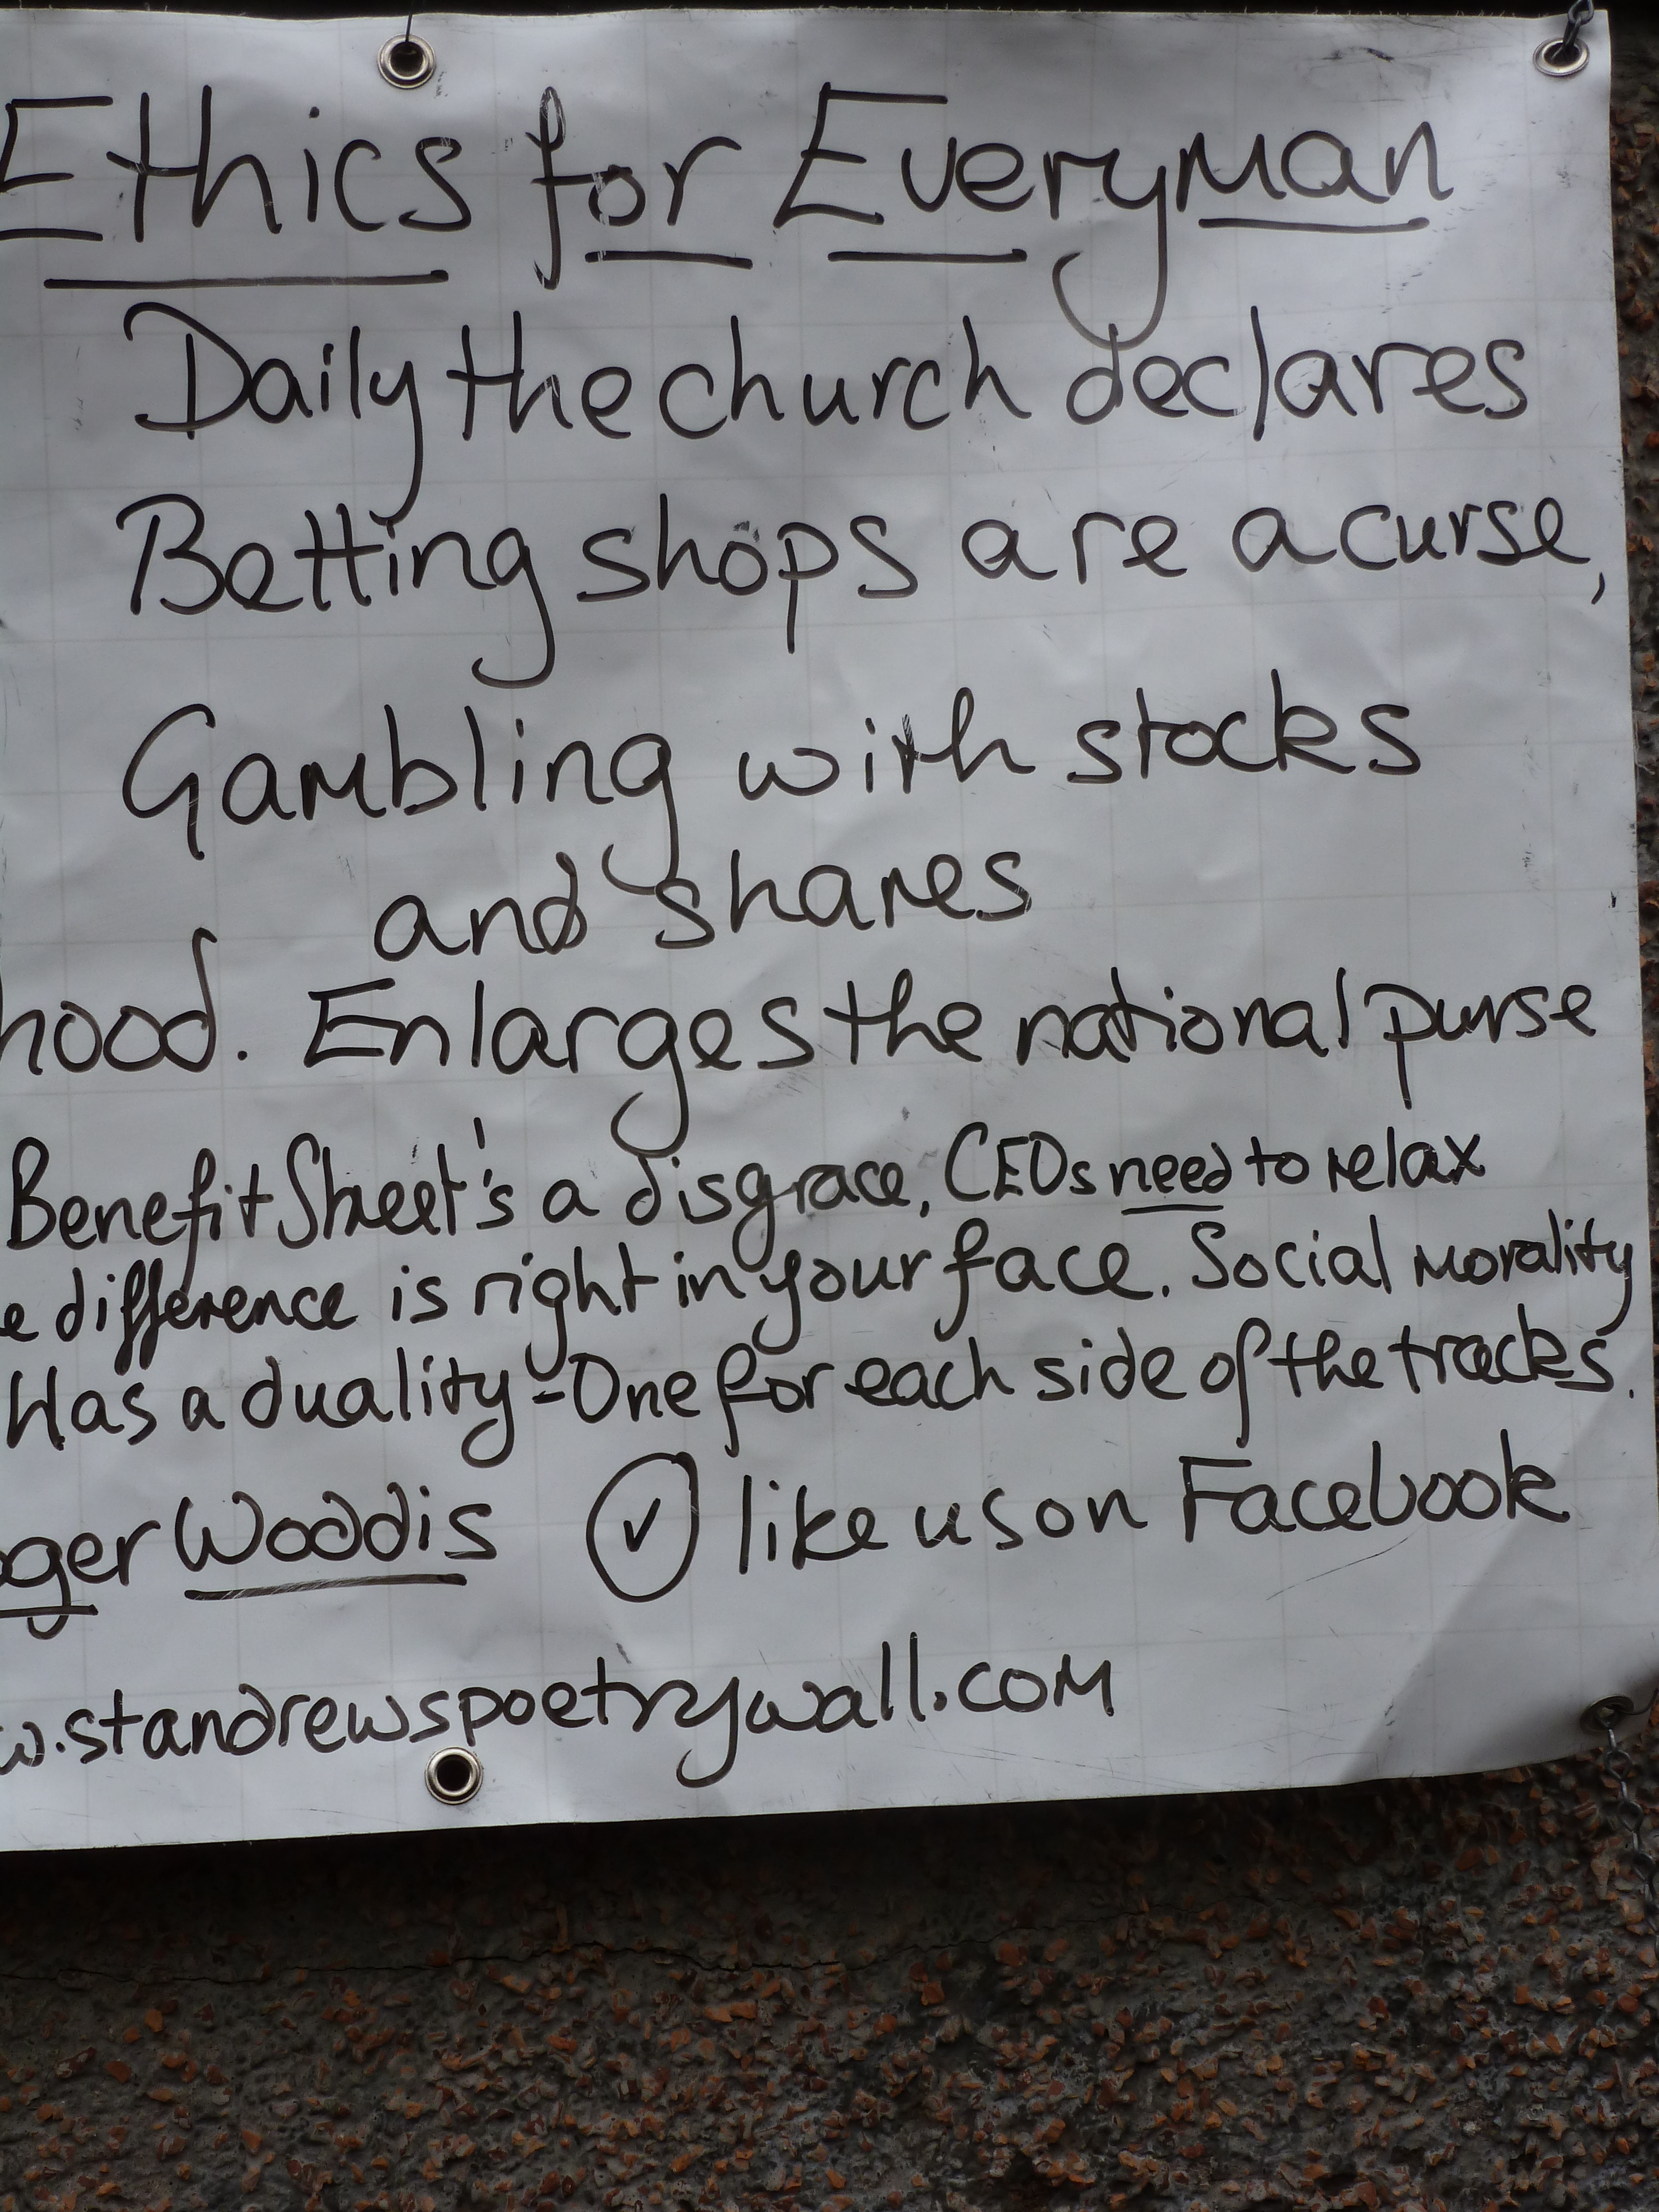 Ethics for Everyman
Daily the church declares
Betting shops are a curse,
Gambling with stocks
and shares
hood. Enlarges the national purse
Benefit Street's a disgrace, CEOs need to relax
e difference is right in your face. Social morality
Has a duality - One for each side of the tracks.
oger Woddis ✓ like us on Facebook
w.standrewspoetrywall.com